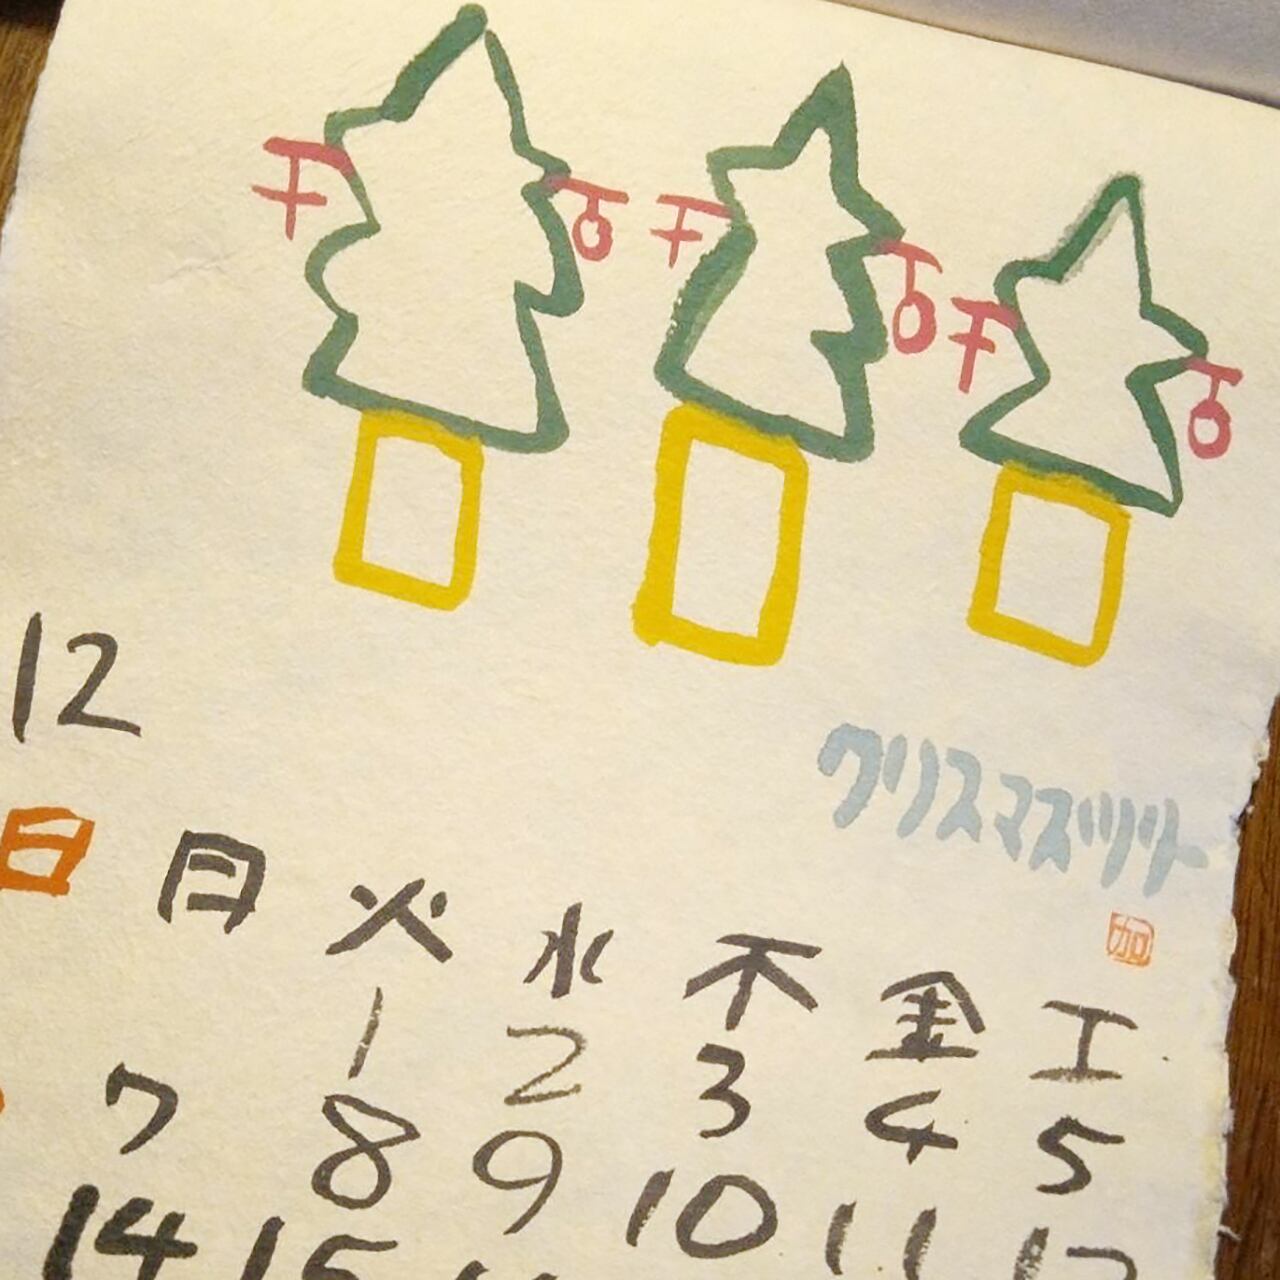 12
クリスマスツリー
加
日 月 火 水 不 金 工
1 2 3 4 5
7 8 9 10 11 12
14 15